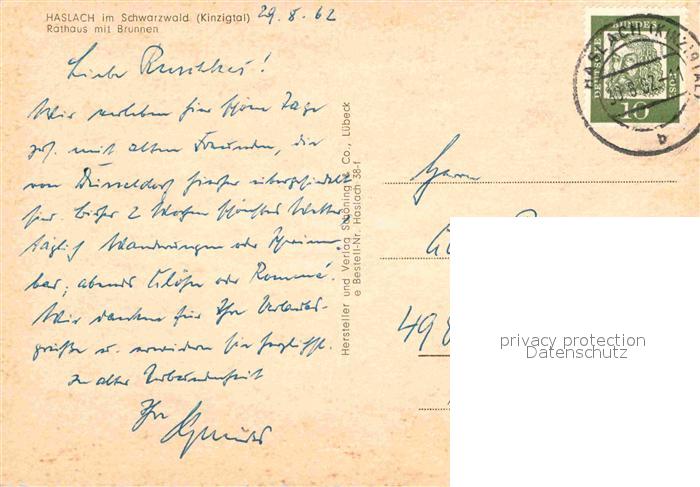 HASLACH im Schwarzwald (Kinzigtal)
Rathaus mit Brunnen
29.8.62
Liebe
Wir verleben hier schöne Tage
zus. mit alten Freunden, die
von Düsseldorf hierher übergesiedelt
sind. Bisher 2 Wochen schönstes Wetter
täglich Wanderungen oder
abends oder Rommé.
Wir danken für Ihre Urlaubs-
grüße u. erwidern sie herzlichst.
In alter Verbundenheit
Ihr
Hersteller und Verlag Schöning & Co., Lübeck
e Bestell-Nr. Haslach 38-f
DEUTSCHE BUNDESPOST
10
HASLACH (KINZIGTAL)
b
Herrn
privacy protection
Datenschutz